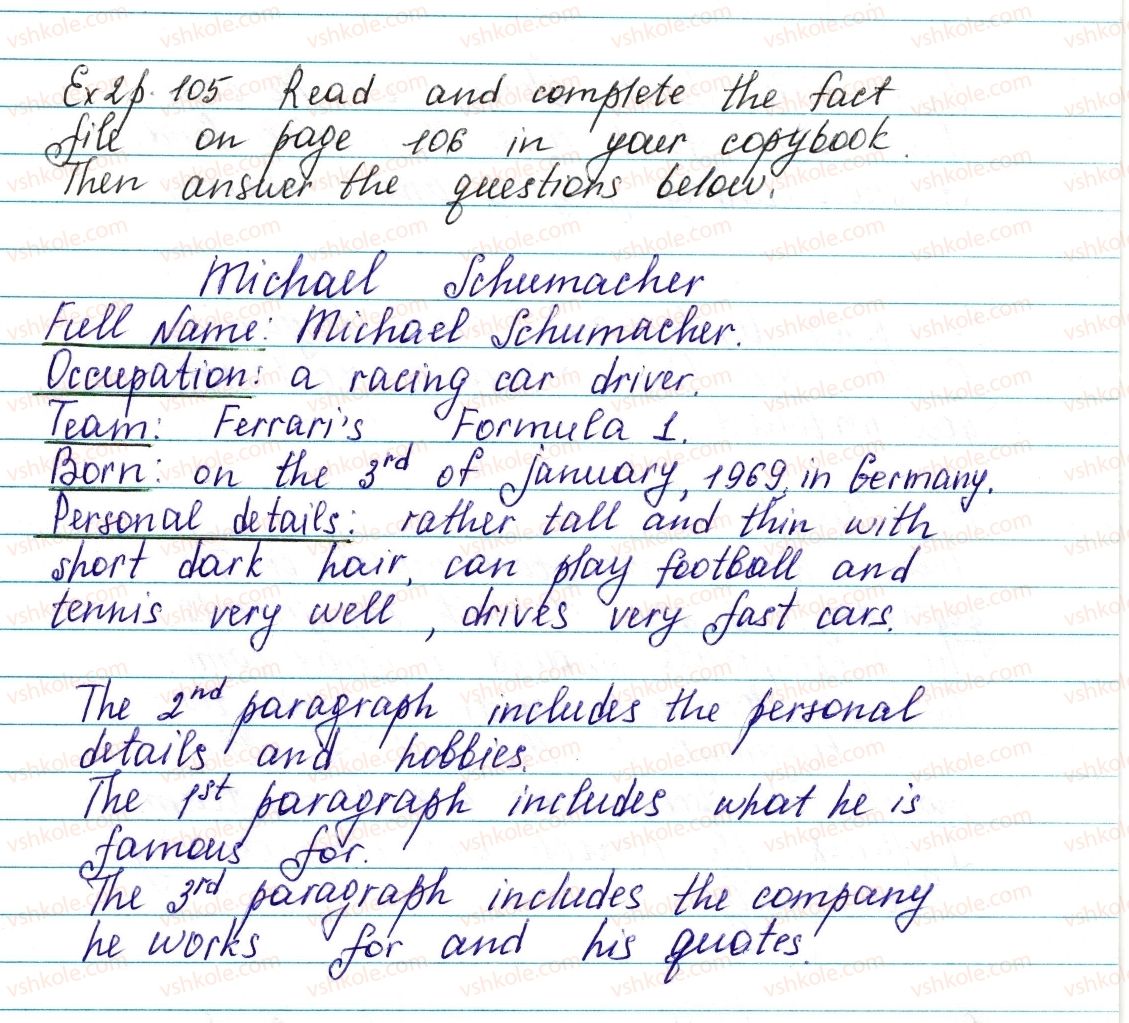 Ex 2 p. 105 Read and complete the fact
file on page 106 in your copybook.
Then answer the questions below.
Michael Schumacher
Full Name: Michael Schumacher.
Occupation: a racing car driver.
Team: Ferrari's Formula 1.
Born: on the 3rd of January, 1969, in Germany.
Personal details: rather tall and thin with
short dark hair, can play football and
tennis very well, drives very fast cars.
The 2nd paragraph includes the personal
details and hobbies.
The 1st paragraph includes what he is
famous for.
The 3rd paragraph includes the company
he works for and his quotes.